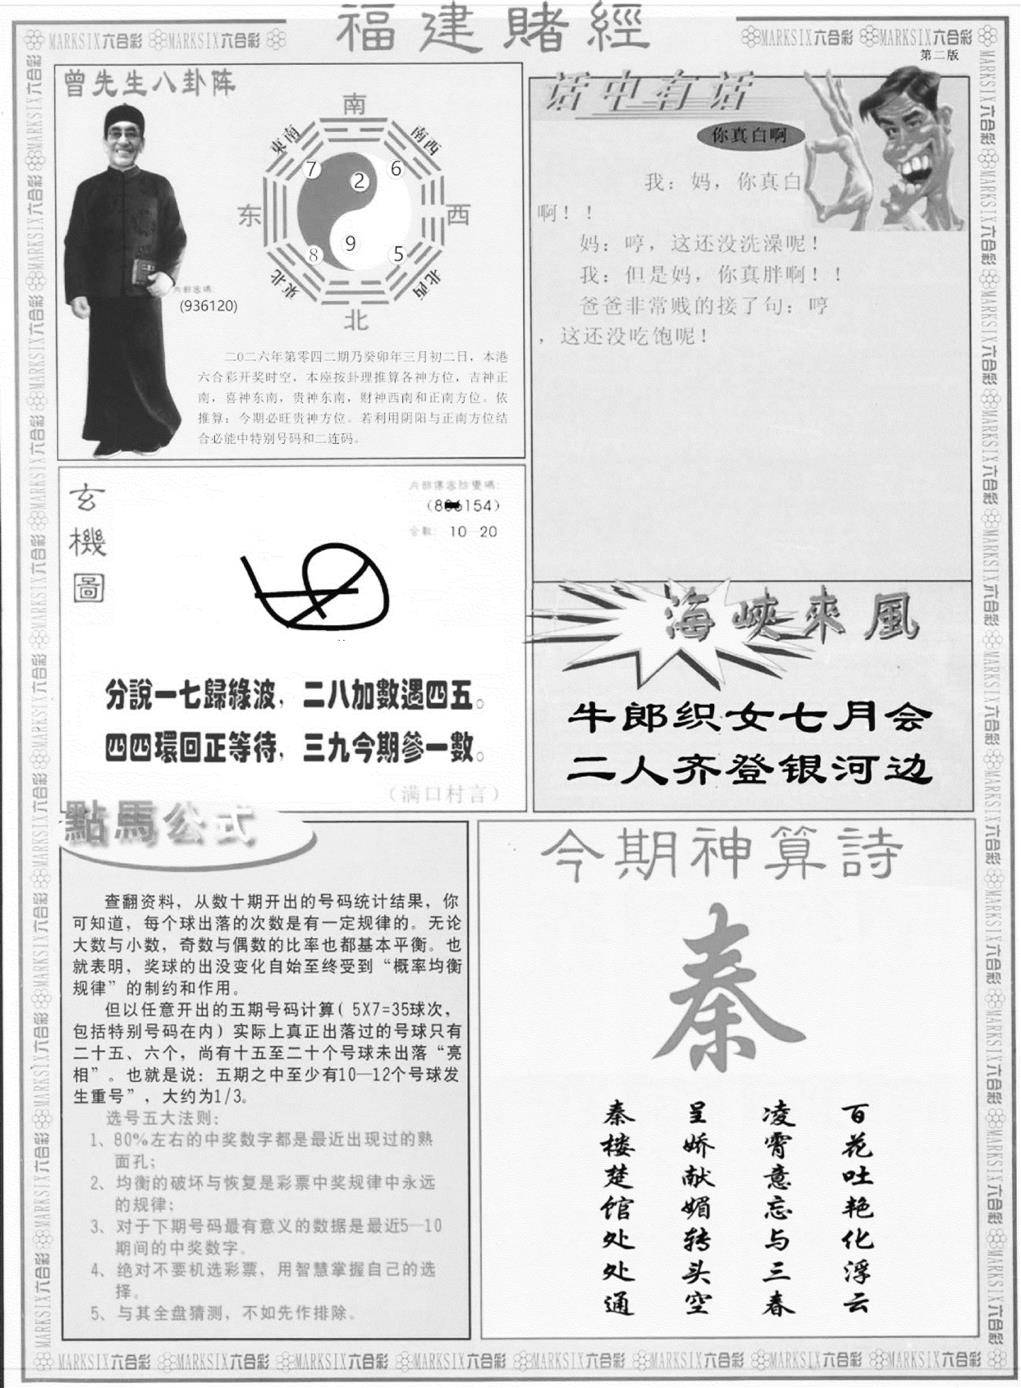 福建賭經
MARKSIX六合彩 MARKSIX六合彩
MARKSIX六合彩 MARKSIX六合彩
第二版
曾先生八卦阵
南
東南
南西
7
2
6
东
西
8
9
5
東北
北西
北
(936120)
二0二六年第零四二期乃癸卯年三月初二日，本港
六合彩开奖时空，本座按卦理推算各神方位，吉神正
南，喜神东南，贵神东南，财神西南和正南方位。依
推算：今期必旺贵神方位。若利用阴阳与正南方位结
合必能中特别号码和二连码。
话中有话
你真白啊
我：妈，你真白
啊！！
妈：哼，这还没洗澡呢！
我：但是妈，你真胖啊！！
爸爸非常贱的接了句：哼
，这还没吃饱呢！
玄機圖
154)
合數： 10 20
分說一七歸綠波，二八加數遇四五。
四四環回正等待，三九今期參一數。
（满口村言）
海峽來風
牛郎织女七月会
二人齐登银河边
點馬公式
查翻资料，从数十期开出的号码统计结果，你
可知道，每个球出落的次数是有一定规律的。无论
大数与小数，奇数与偶数的比率也都基本平衡。也
就表明，奖球的出没变化自始至终受到“概率均衡
规律”的制约和作用。
但以任意开出的五期号码计算( 5X7=35球次，
包括特别号码在内）实际上真正出落过的号球只有
二十五、六个，尚有十五至二十个号球未出落“亮
相”。也就是说：五期之中至少有10—12个号球发
生重号”，大约为1/3。
选号五大法则：
1、80%左右的中奖数字都是最近出现过的熟
面孔；
2、均衡的破坏与恢复是彩票中奖规律中永远
的规律；
3、对于下期号码最有意义的数据是最近5—10
期间的中奖数字。
4、绝对不要机选彩票，用智慧掌握自己的选
择。
5、与其全盘猜测，不如先作排除。
今期神算詩
秦
百花吐艳化浮云
凌霄意忘与三春
呈娇献媚转头空
秦楼楚馆处处通
MARKSIX六合彩 MARKSIX六合彩 MARKSIX六合彩 MARKSIX六合彩 MARKSIX六合彩 MARKSIX六合彩 MARKSIX六合彩 MARKSIX六合彩